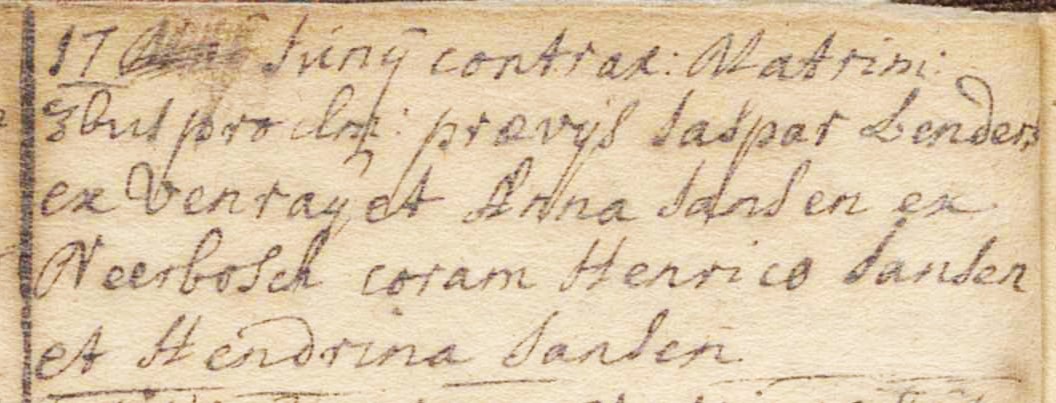 17 Junij contrax: Matrim:
3bus proclm: prævijs Jaspar Lenders
ex Venraij et Anna Jansen ex
Neerbosch coram Henrico Jansen
et Hendrina Jansen